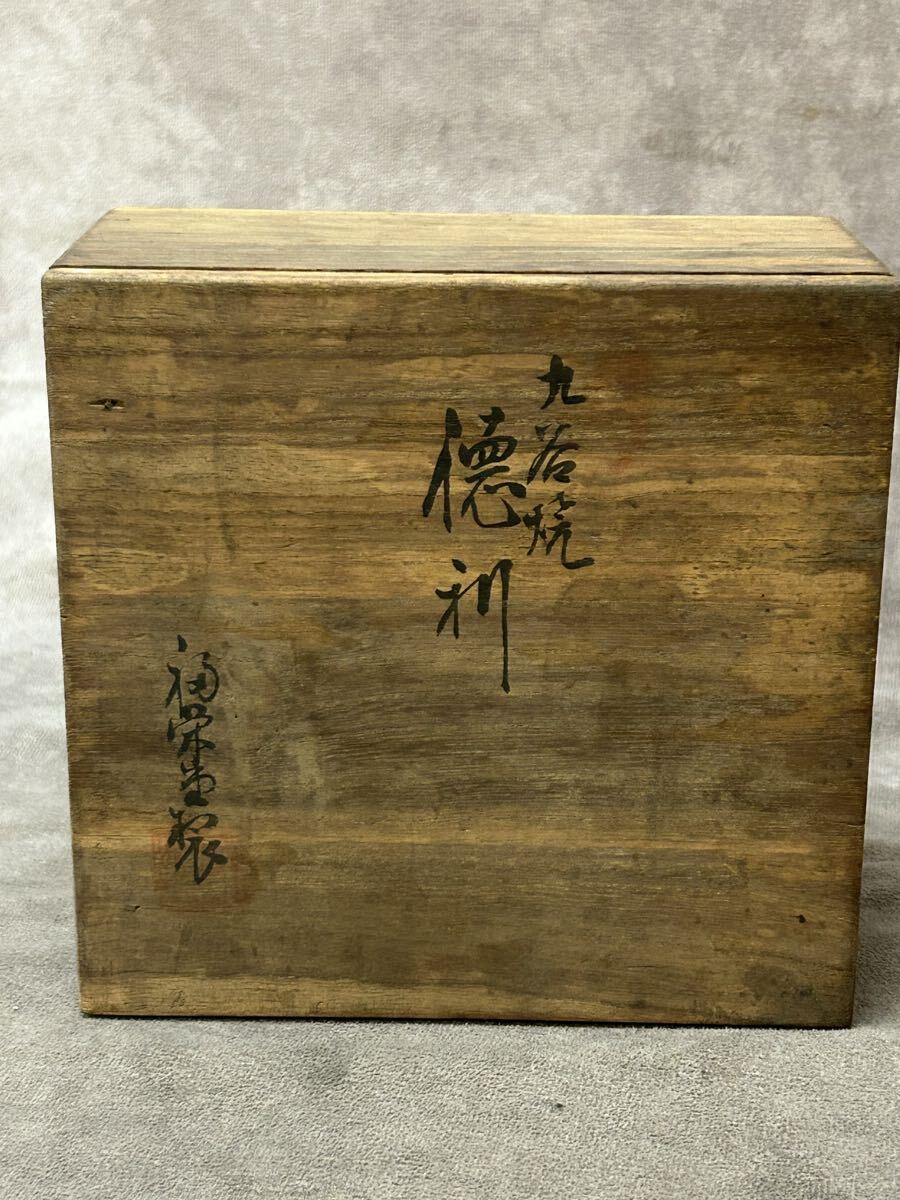 九谷焼
徳利
福栄堂製